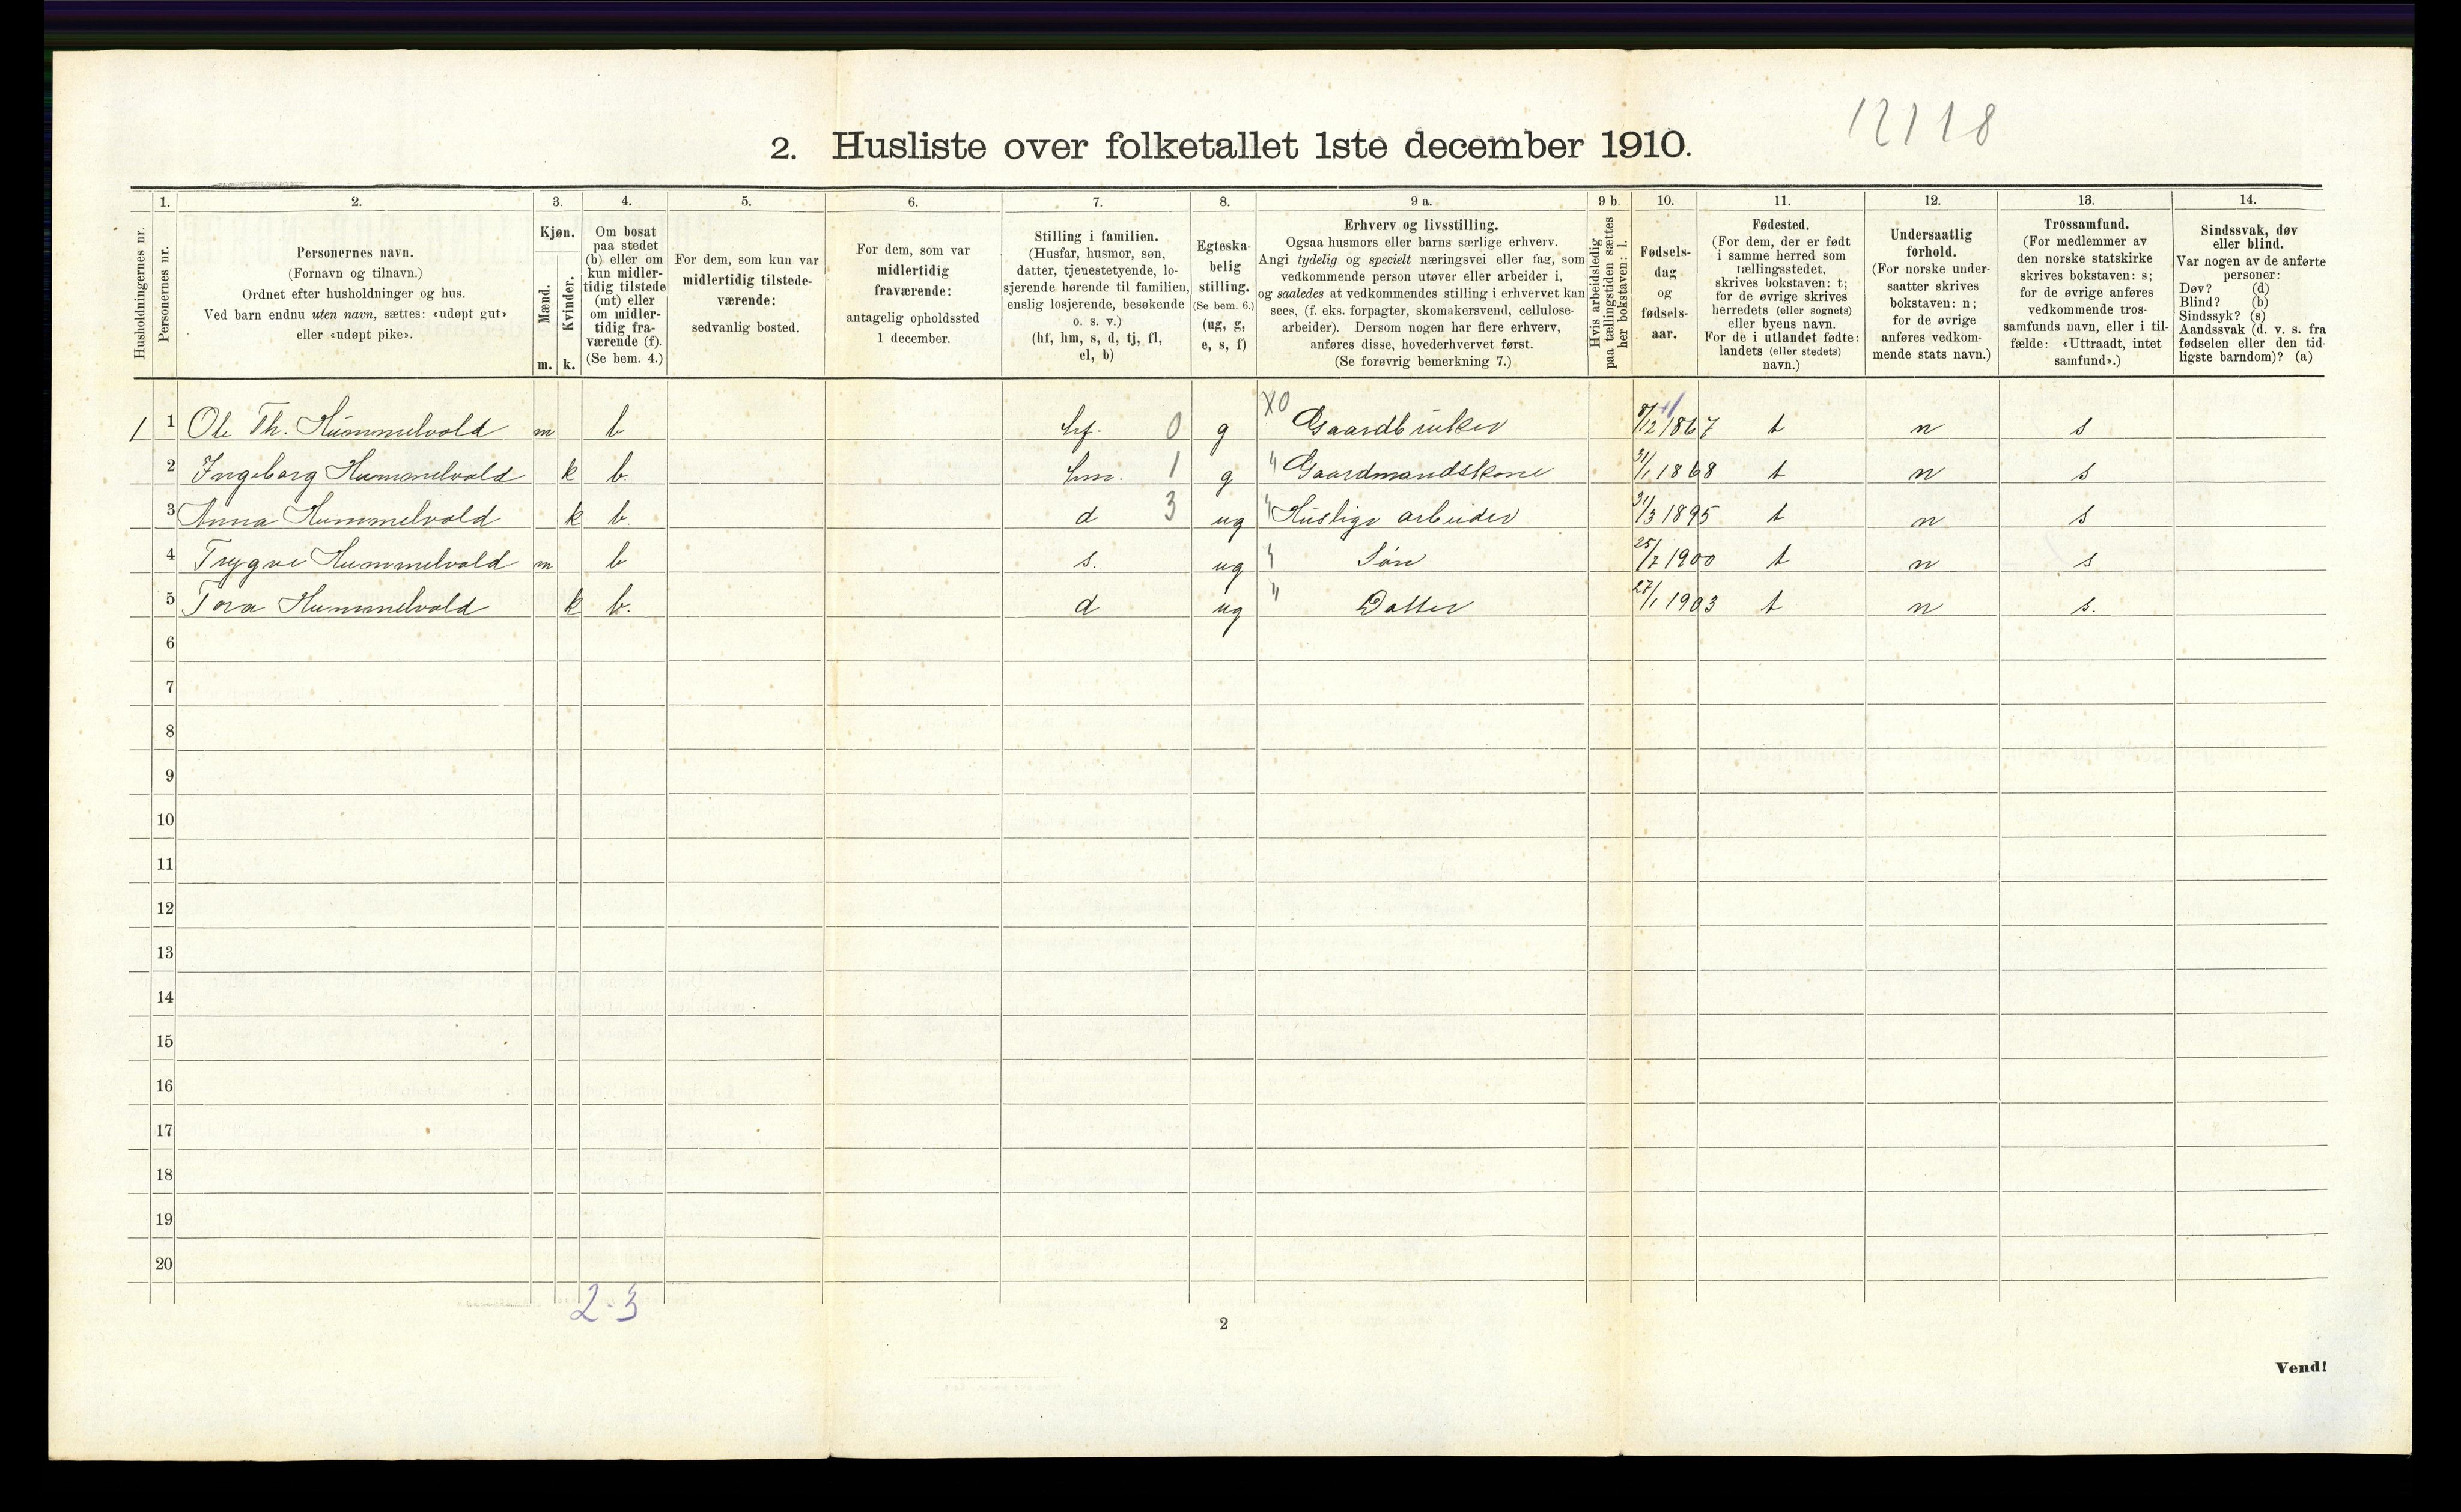 12118
2. Husliste over folketallet 1ste december 1910.
Husholdningernes nr.
1.
Personernes nr.
2.
Personernes navn.
(Fornavn og tilnavn.)
Ordnet efter husholdninger og hus.
Ved barn endnu uten navn, sættes: «udøpt gut»
eller «udøpt pike».
3.
Kjøn.
Mænd.
Kvinder.
m. k.
4.
Om bosat
paa stedet
(b) eller om
kun midler-
tidig tilstede
(mt) eller
om midler-
tidig fra-
værende (f).
(Se bem. 4.)
5.
For dem, som kun var
midlertidig tilstede-
værende:
sedvanlig bosted.
6.
For dem, som var
midlertidig
fraværende:
antagelig opholdssted
1 december.
7.
Stilling i familien.
(Husfar, husmor, søn,
datter, tjenestetyende, lo-
sjerende hørende til familien,
enslig losjerende, besøkende
o. s. v.)
(hf, hm, s, d, tj, fl,
el, b)
8.
Egteska-
belig
stilling.
(Se bem. 6.)
(ug, g,
e, s, f)
9 a.
Erhverv og livsstilling.
Ogsaa husmors eller barns særlige erhverv.
Angi tydelig og specielt næringsvei eller fag, som
vedkommende person utøver eller arbeider i,
og saaledes at vedkommendes stilling i erhvervet kan
sees, (f. eks. forpagter, skomakersvend, cellulose-
arbeider). Dersom nogen har flere erhverv,
anføres disse, hovederhvervet først.
(Se forøvrig bemerkning 7.)
9 b.
Hvis arbeidsledig
paa tællingstiden sættes
her bokstaven: l.
10.
Fødsels-
dag
og
fødsels-
aar.
11.
Fødested.
(For dem, der er født
i samme herred som
tællingsstedet,
skrives bokstaven: t;
for de øvrige skrives
herredets (eller sognets)
eller byens navn.
For de i utlandet fødte:
landets (eller stedets)
navn.)
12.
Undersaatlig
forhold.
(For norske under-
saatter skrives
bokstaven: n;
for de øvrige
anføres vedkom-
mende stats navn.)
13.
Trossamfund.
(For medlemmer av
den norske statskirke
skrives bokstaven: s;
for de øvrige anføres
vedkommende tros-
samfunds navn, eller i til-
fælde: «Uttraadt, intet
samfund».)
14.
Sindssvak, døv
eller blind.
Var nogen av de anførte
personer:
Døv? (d)
Blind? (b)
Sindssyk? (s)
Aandssvak (d. v. s. fra
fødselen eller den tid-
ligste barndom)? (a)
1 1 Ole Th. Hummelvold m b hf. 0 g X0 Gaardbruker 8/12 1867 t n s
2 Ingeborg Hummelvold k b. hm. 1 g " Gaardmandskone 31/1 1868 t n s
3 Anna Hummelvold k b. d 3 ug " Huslige arbeider 31/3 1895 t n s
4 Trygve Hummelvold m b s. ug " Søn 25/7 1900 t n s
5 Tora Hummelvold k b. d ug " Datter 27/1 1903 t n s.
6
7
8
9
10
11
12
13
14
15
16
17
18
19
20
2-3
2
Vend!